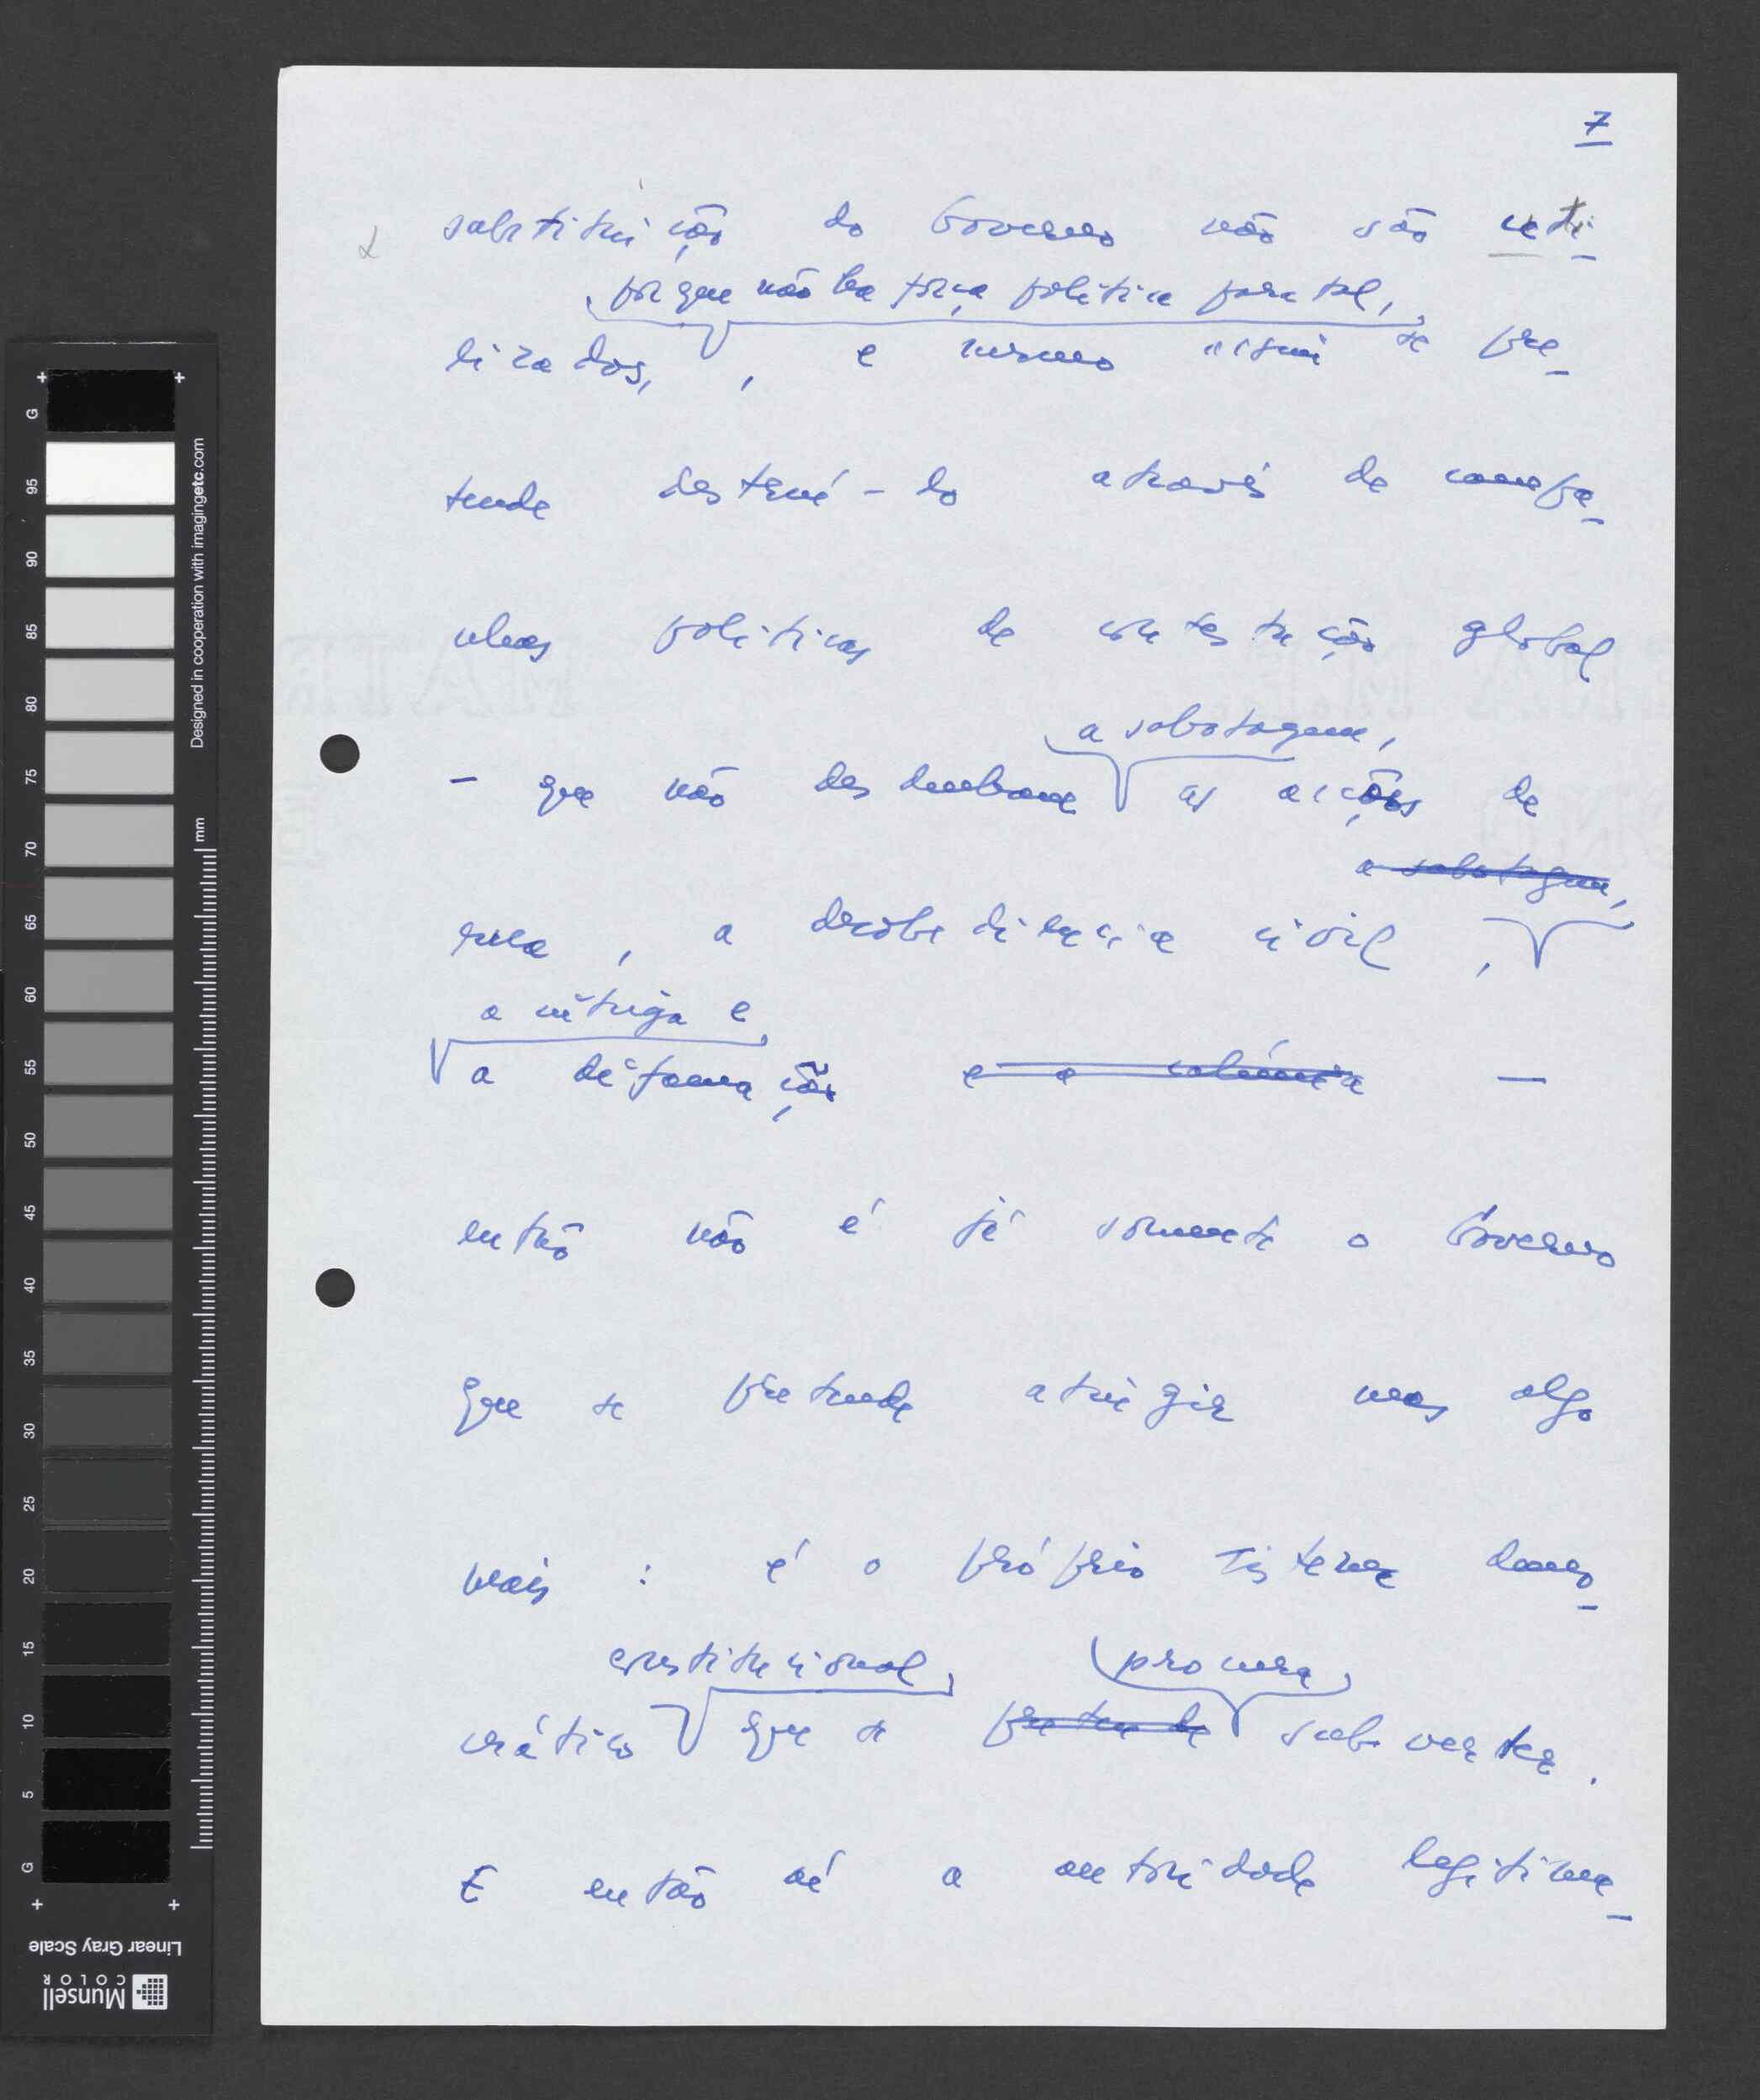 7
substituição do Governo não são uti-
porque não ha força politica para tal,
lizados, , e mesmo assim se pre-
tende destruí-lo através de campa-
nhas politicas de contestação global
a sabotagem,
- que não desdenham as acções de
a sabotagem,
rua, a desobediência civil,
a intriga e
a difamação e a calúnia —
então não é já somente o Governo
que se pretende atingir mas algo
mais : é o próprio sistema demo-
constitucional, procura
crático que se pretende subverter.
E então aí a autoridade legitima-
G
95
90
85
80
75
70
65
60
55
50
45
40
35
30
25
20
15
10
5
G
Designed in cooperation with imagingetc.com
mm
Linear Gray Scale
Munsell
COLOR